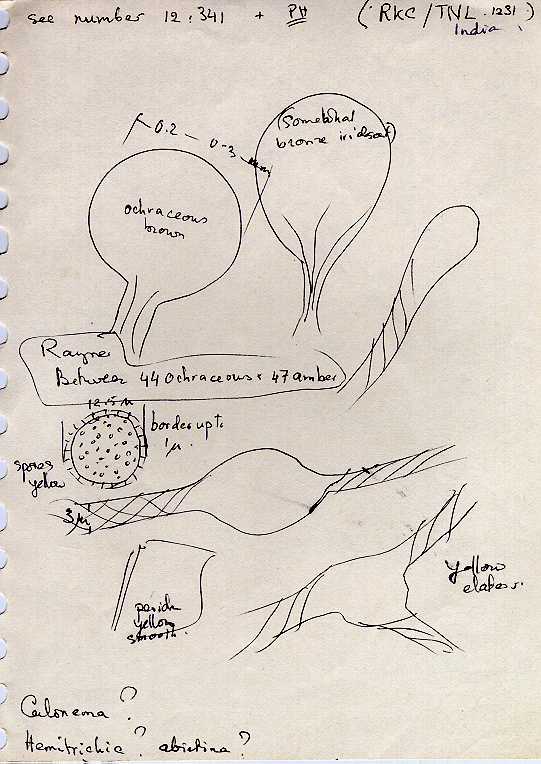 see number 12.341 + PH (RKC/TNL.1231)
India
0.2 - 0.3 mm
(Somewhat
bronze iridescent)
ochraceous
brown
Rayner
Between 44 Ochraceous & 47 amber
12.5 µ
border up to
1µ
spores
yellow
3µ
perid.
yellow
smooth.
Yellow
elaters.
Calonema?
Hemitrichia? abietina?